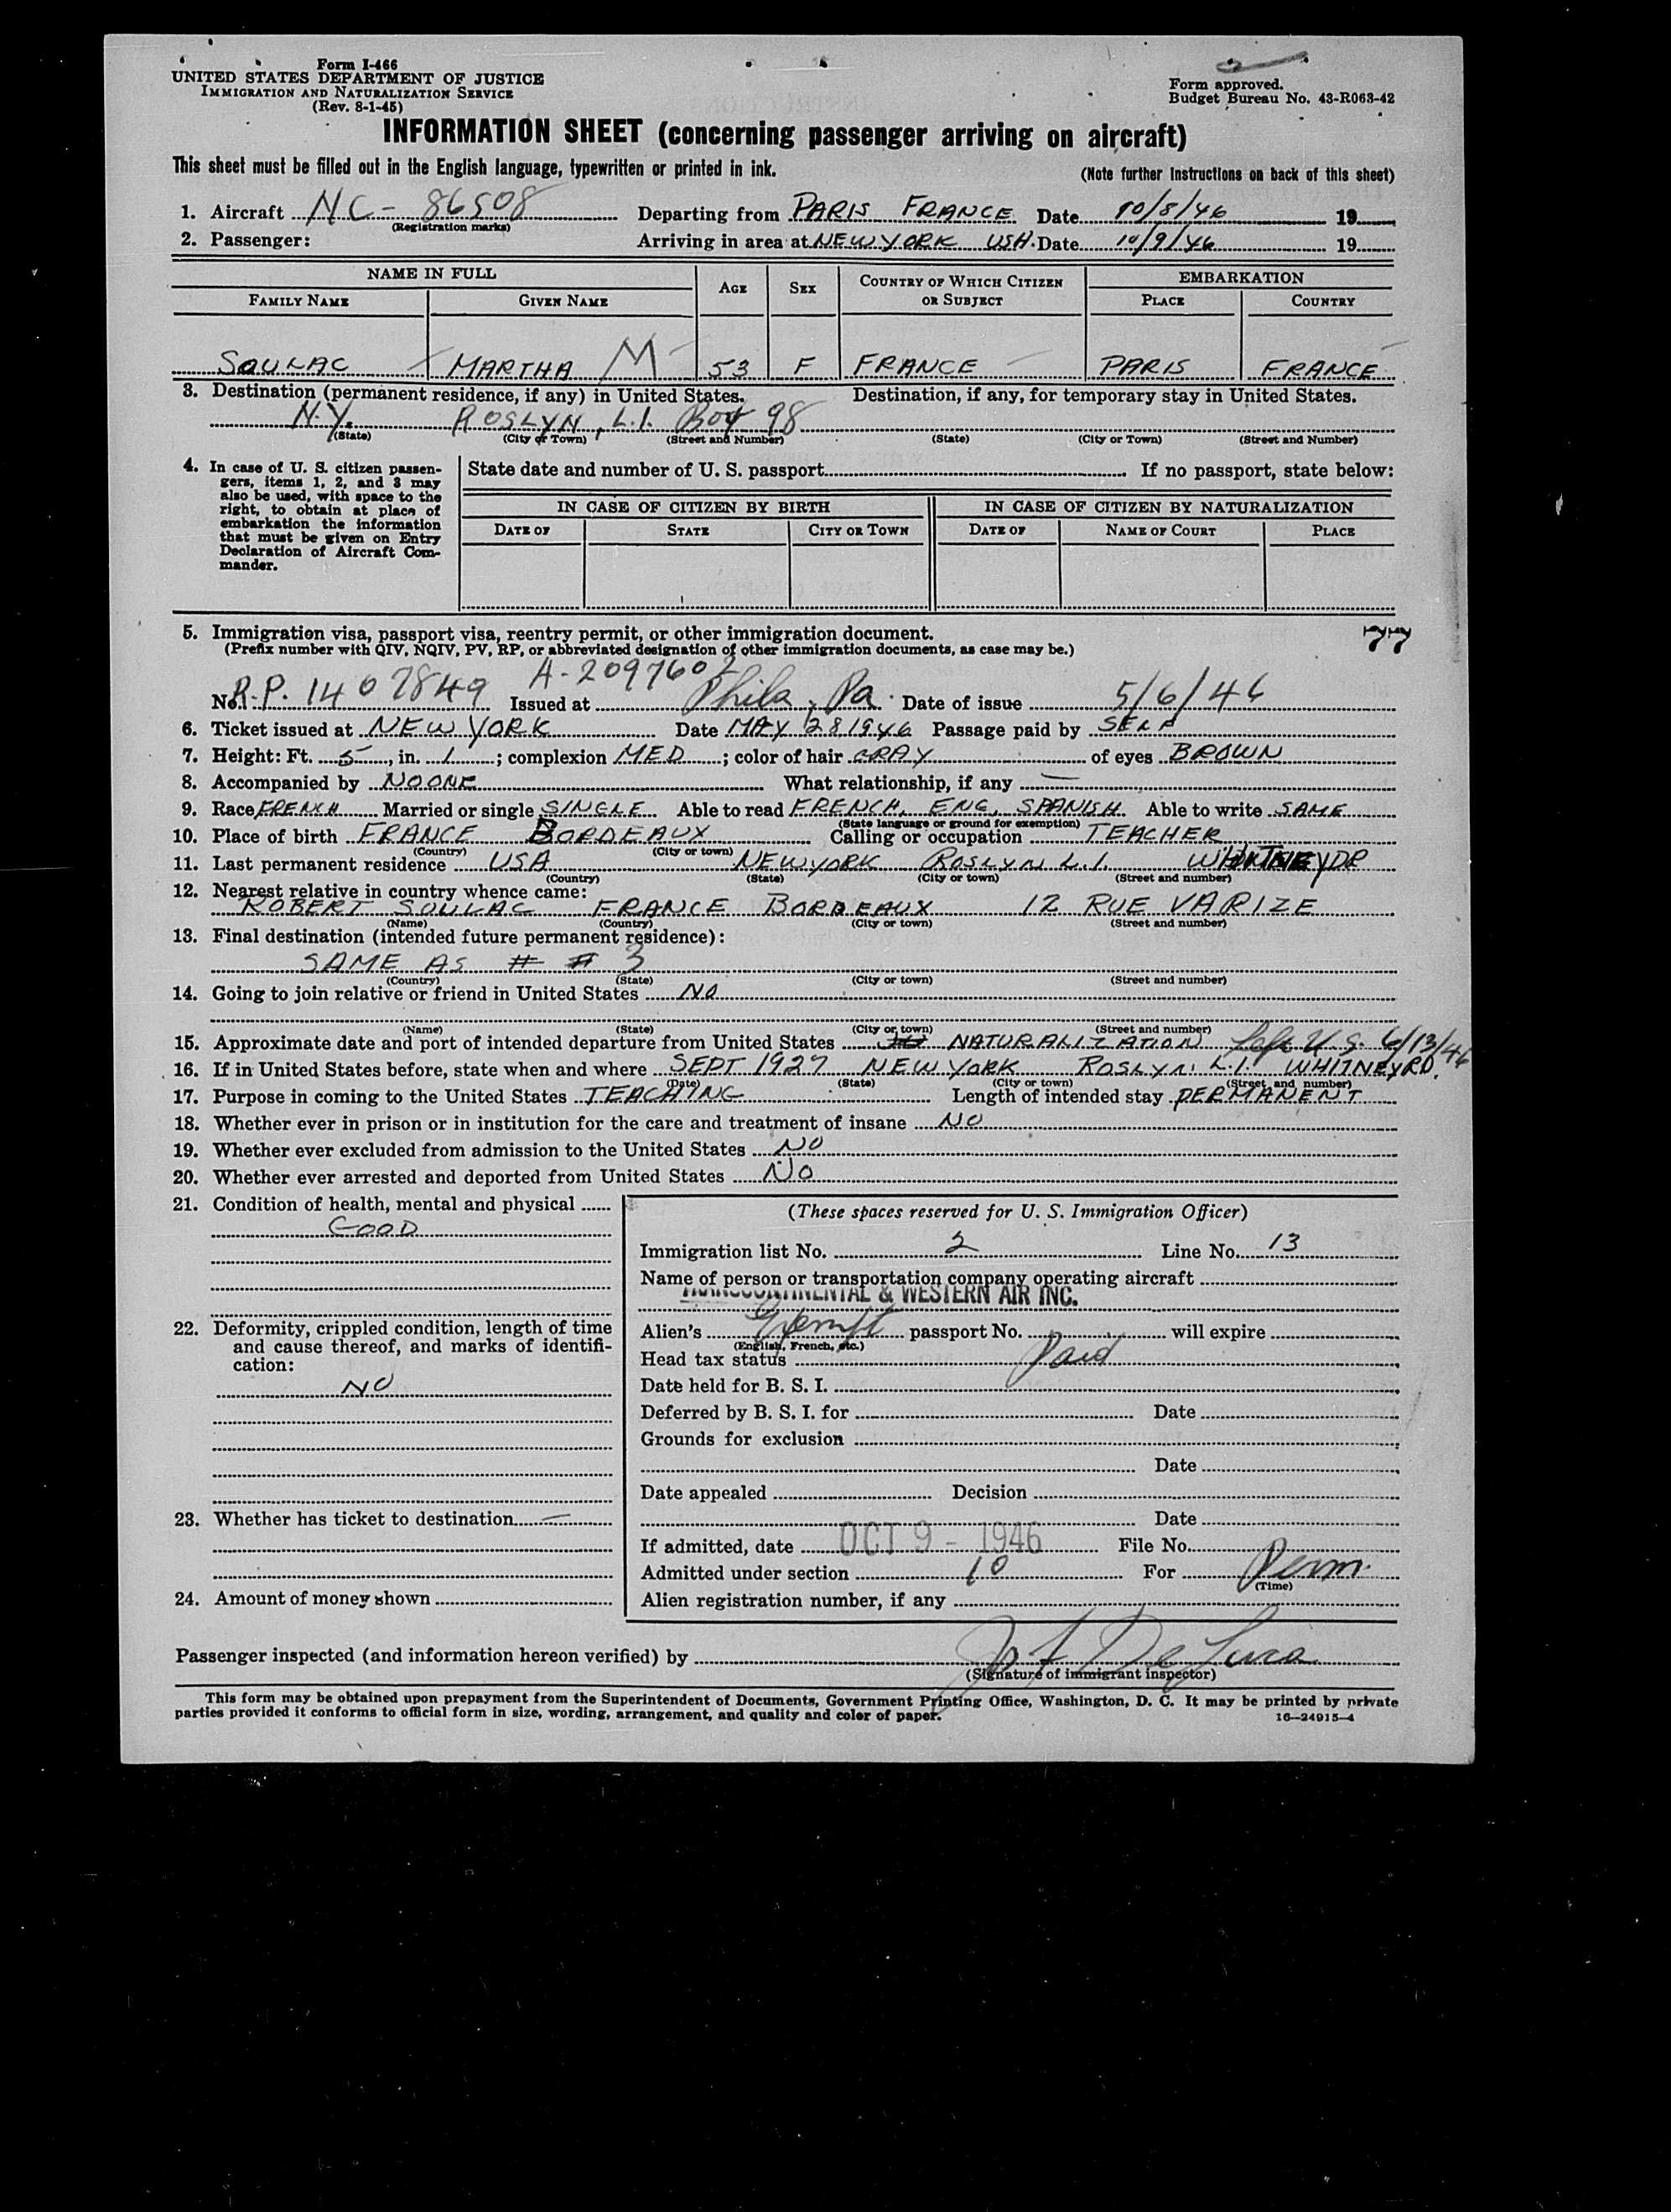 Form I-466
UNITED STATES DEPARTMENT OF JUSTICE
IMMIGRATION AND NATURALIZATION SERVICE
(Rev. 8-1-45)
Form approved.
Budget Bureau No. 43-R063-42
INFORMATION SHEET (concerning passenger arriving on aircraft)
This sheet must be filled out in the English language, typewritten or printed in ink. (Note further instructions on back of this sheet)
1. Aircraft NC- 86508 Departing from PARIS FRANCE Date 10/8/46 19
(Registration marks)
2. Passenger: Arriving in area at NEW YORK USA. Date 10/9/46 19
NAME IN FULL AGE SEX COUNTRY OF WHICH CITIZEN OR SUBJECT EMBARKATION
FAMILY NAME GIVEN NAME PLACE COUNTRY
SOULAC MARTHA M 53 F FRANCE PARIS FRANCE
3. Destination (permanent residence, if any) in United States. Destination, if any, for temporary stay in United States.
N.Y. ROSLYN, L.I. Box 98
(State) (City or Town) (Street and Number) (State) (City or Town) (Street and Number)
4. In case of U. S. citizen passen-
gers, items 1, 2, and 3 may
also be used, with space to the
right, to obtain at place of
embarkation the information
that must be given on Entry
Declaration of Aircraft Com-
mander.
State date and number of U. S. passport If no passport, state below:
IN CASE OF CITIZEN BY BIRTH IN CASE OF CITIZEN BY NATURALIZATION
DATE OF STATE CITY OR TOWN DATE OF NAME OF COURT PLACE
5. Immigration visa, passport visa, reentry permit, or other immigration document. 77
(Prefix number with QIV, NQIV, PV, RP, or abbreviated designation of other immigration documents, as case may be.)
A-2097602
No. R.P. 1407849 Issued at Phila, Pa. Date of issue 5/6/46
6. Ticket issued at NEW YORK Date MAY 28 1946 Passage paid by SELF
7. Height: Ft. 5, in. 1; complexion MED; color of hair GRAY of eyes BROWN
8. Accompanied by NOONE What relationship, if any —
9. Race FRENCH Married or single SINGLE Able to read FRENCH, ENG, SPANISH Able to write SAME
(State language or ground for exemption)
10. Place of birth FRANCE BORDEAUX Calling or occupation TEACHER
(Country) (City or town)
11. Last permanent residence USA NEW YORK ROSLYN L.I. WHITNEY DR
(Country) (State) (City or town) (Street and number)
12. Nearest relative in country whence came:
ROBERT SOULAC FRANCE BORDEAUX 12 RUE VARIZE
(Name) (Country) (City or town) (Street and number)
13. Final destination (intended future permanent residence):
SAME AS # # 3
(Country) (State) (City or town) (Street and number)
14. Going to join relative or friend in United States NO
(Name) (State) (City or town) (Street and number)
15. Approximate date and port of intended departure from United States NATURALIZATION Left U.S. 6/13/46
16. If in United States before, state when and where SEPT 1927 NEW YORK ROSLYN. L.I. WHITNEY RD.
(Date) (State) (City or town) (Street and number)
17. Purpose in coming to the United States TEACHING Length of intended stay PERMANENT
18. Whether ever in prison or in institution for the care and treatment of insane NO
19. Whether ever excluded from admission to the United States NO
20. Whether ever arrested and deported from United States NO
21. Condition of health, mental and physical
GOOD
22. Deformity, crippled condition, length of time
and cause thereof, and marks of identifi-
cation:
NO
23. Whether has ticket to destination —
24. Amount of money shown
(These spaces reserved for U. S. Immigration Officer)
Immigration list No. 2 Line No. 13
Name of person or transportation company operating aircraft
TRANSCONTINENTAL & WESTERN AIR INC.
Alien's Exempt passport No. will expire
(English, French, etc.)
Head tax status Paid
Date held for B. S. I.
Deferred by B. S. I. for Date
Grounds for exclusion
Date
Date appealed Decision
Date
If admitted, date OCT 9 - 1946 File No.
Admitted under section 10 For Perm.
(Time)
Alien registration number, if any
Passenger inspected (and information hereon verified) by De Luca
(Signature of immigrant inspector)
This form may be obtained upon prepayment from the Superintendent of Documents, Government Printing Office, Washington, D. C. It may be printed by private
parties provided it conforms to official form in size, wording, arrangement, and quality and color of paper. 16—24915-4